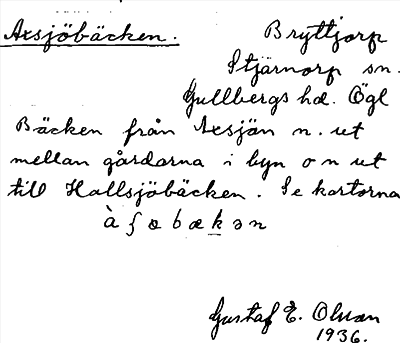 Axsjöbäcken.
Bryttjorp
Stjärnorp sn.
Gullbergs hd. Ögl
Bäcken från Axsjän n. ut
mellan gårdarna i byn o n ut
till Hallsjöbäcken. Se kartorna
Gustaf E. Olsson
1936.